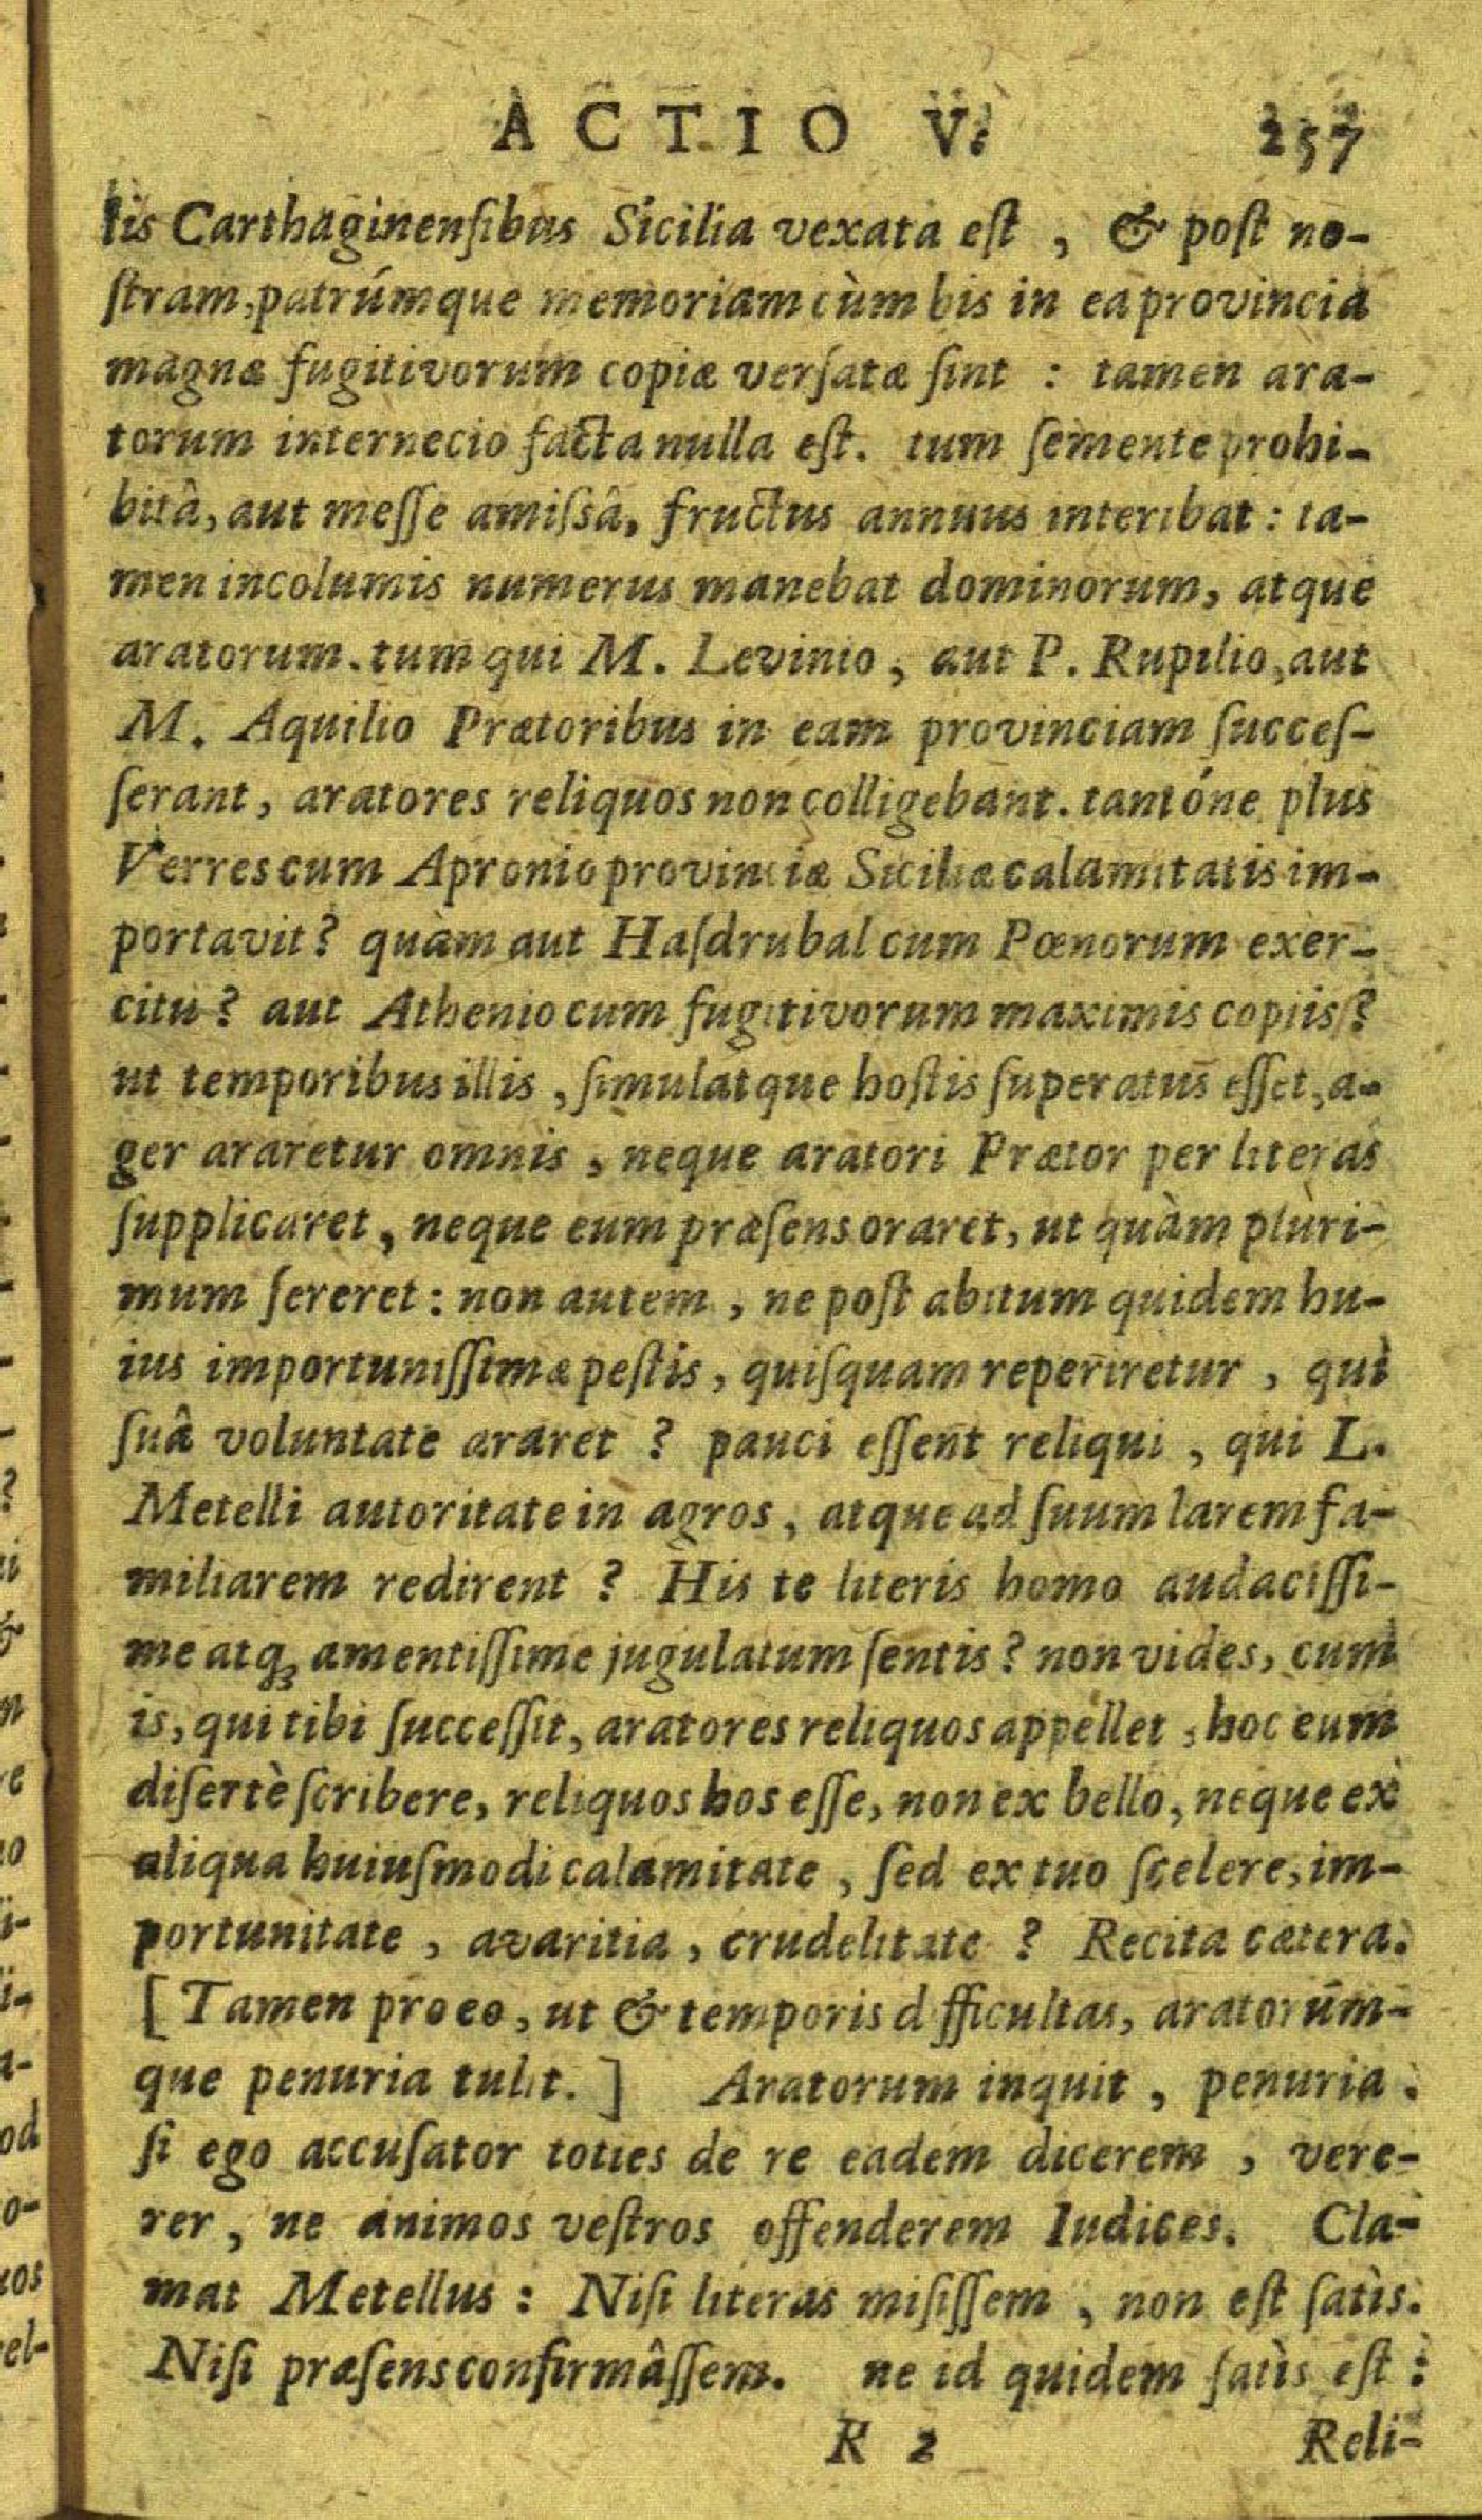 ACTIO V. 257
lis Carthaginensibus Sicilia vexata est, & post no-
stram, patrúmque memoriam cùm bis in ea provincia
magnæ fugitivorum copiæ versatæ sint : tamen ara-
torum internecio facta nulla est. tum semente prohi-
bitâ, aut messe amissâ, fructus annuus interibat : ta-
men incolumis numerus manebat dominorum, atque
aratorum. tum qui M. Levinio, aut P. Rupilio, aut
M. Aquilio Prætoribus in eam provinciam succes-
serant, aratores reliquos non colligebant. tantóne plus
Verres cum Apronio provinciæ Siciliæ calamitatis im-
portavit? quàm aut Hasdrubal cum Pœnorum exer-
citu? aut Athenio cum fugitivorum maximis copiis?
ut temporibus illis, simulatque hostis superatus esset, a-
ger araretur omnis, neque aratori Prætor per literas
supplicaret, neque eum præsens oraret, ut quàm pluri-
mum sereret : non autem, ne post abitum quidem hu-
ius importunissimæ pestis, quisquam reperiretur, qui
suâ voluntate araret ? pauci essent reliqui, qui L.
Metelli autoritate in agros, atque ad suum larem fa-
miliarem redirent ? His te literis homo audacissi-
me atq; amentissime jugulatum sentis? non vides, cum
is, qui tibi successit, aratores reliquos appellet, hoc eum
disertè scribere, reliquos hos esse, non ex bello, neque ex
aliqua huiusmodi calamitate, sed ex tuo scelere, im-
portunitate, avaritia, crudelitate ? Recita cætera.
[ Tamen pro eo, ut & temporis d fficultas, aratorúm-
que penuria tulit. ] Aratorum inquit, penuria.
si ego accusator toties de re eadem dicerem, vere-
rer, ne animos vestros offenderem Iudices. Cla-
mat Metellus : Nisi literas misissem, non est satis.
Nisi præsens confirmâssem. ne id quidem satis est :
R 2 Reli-